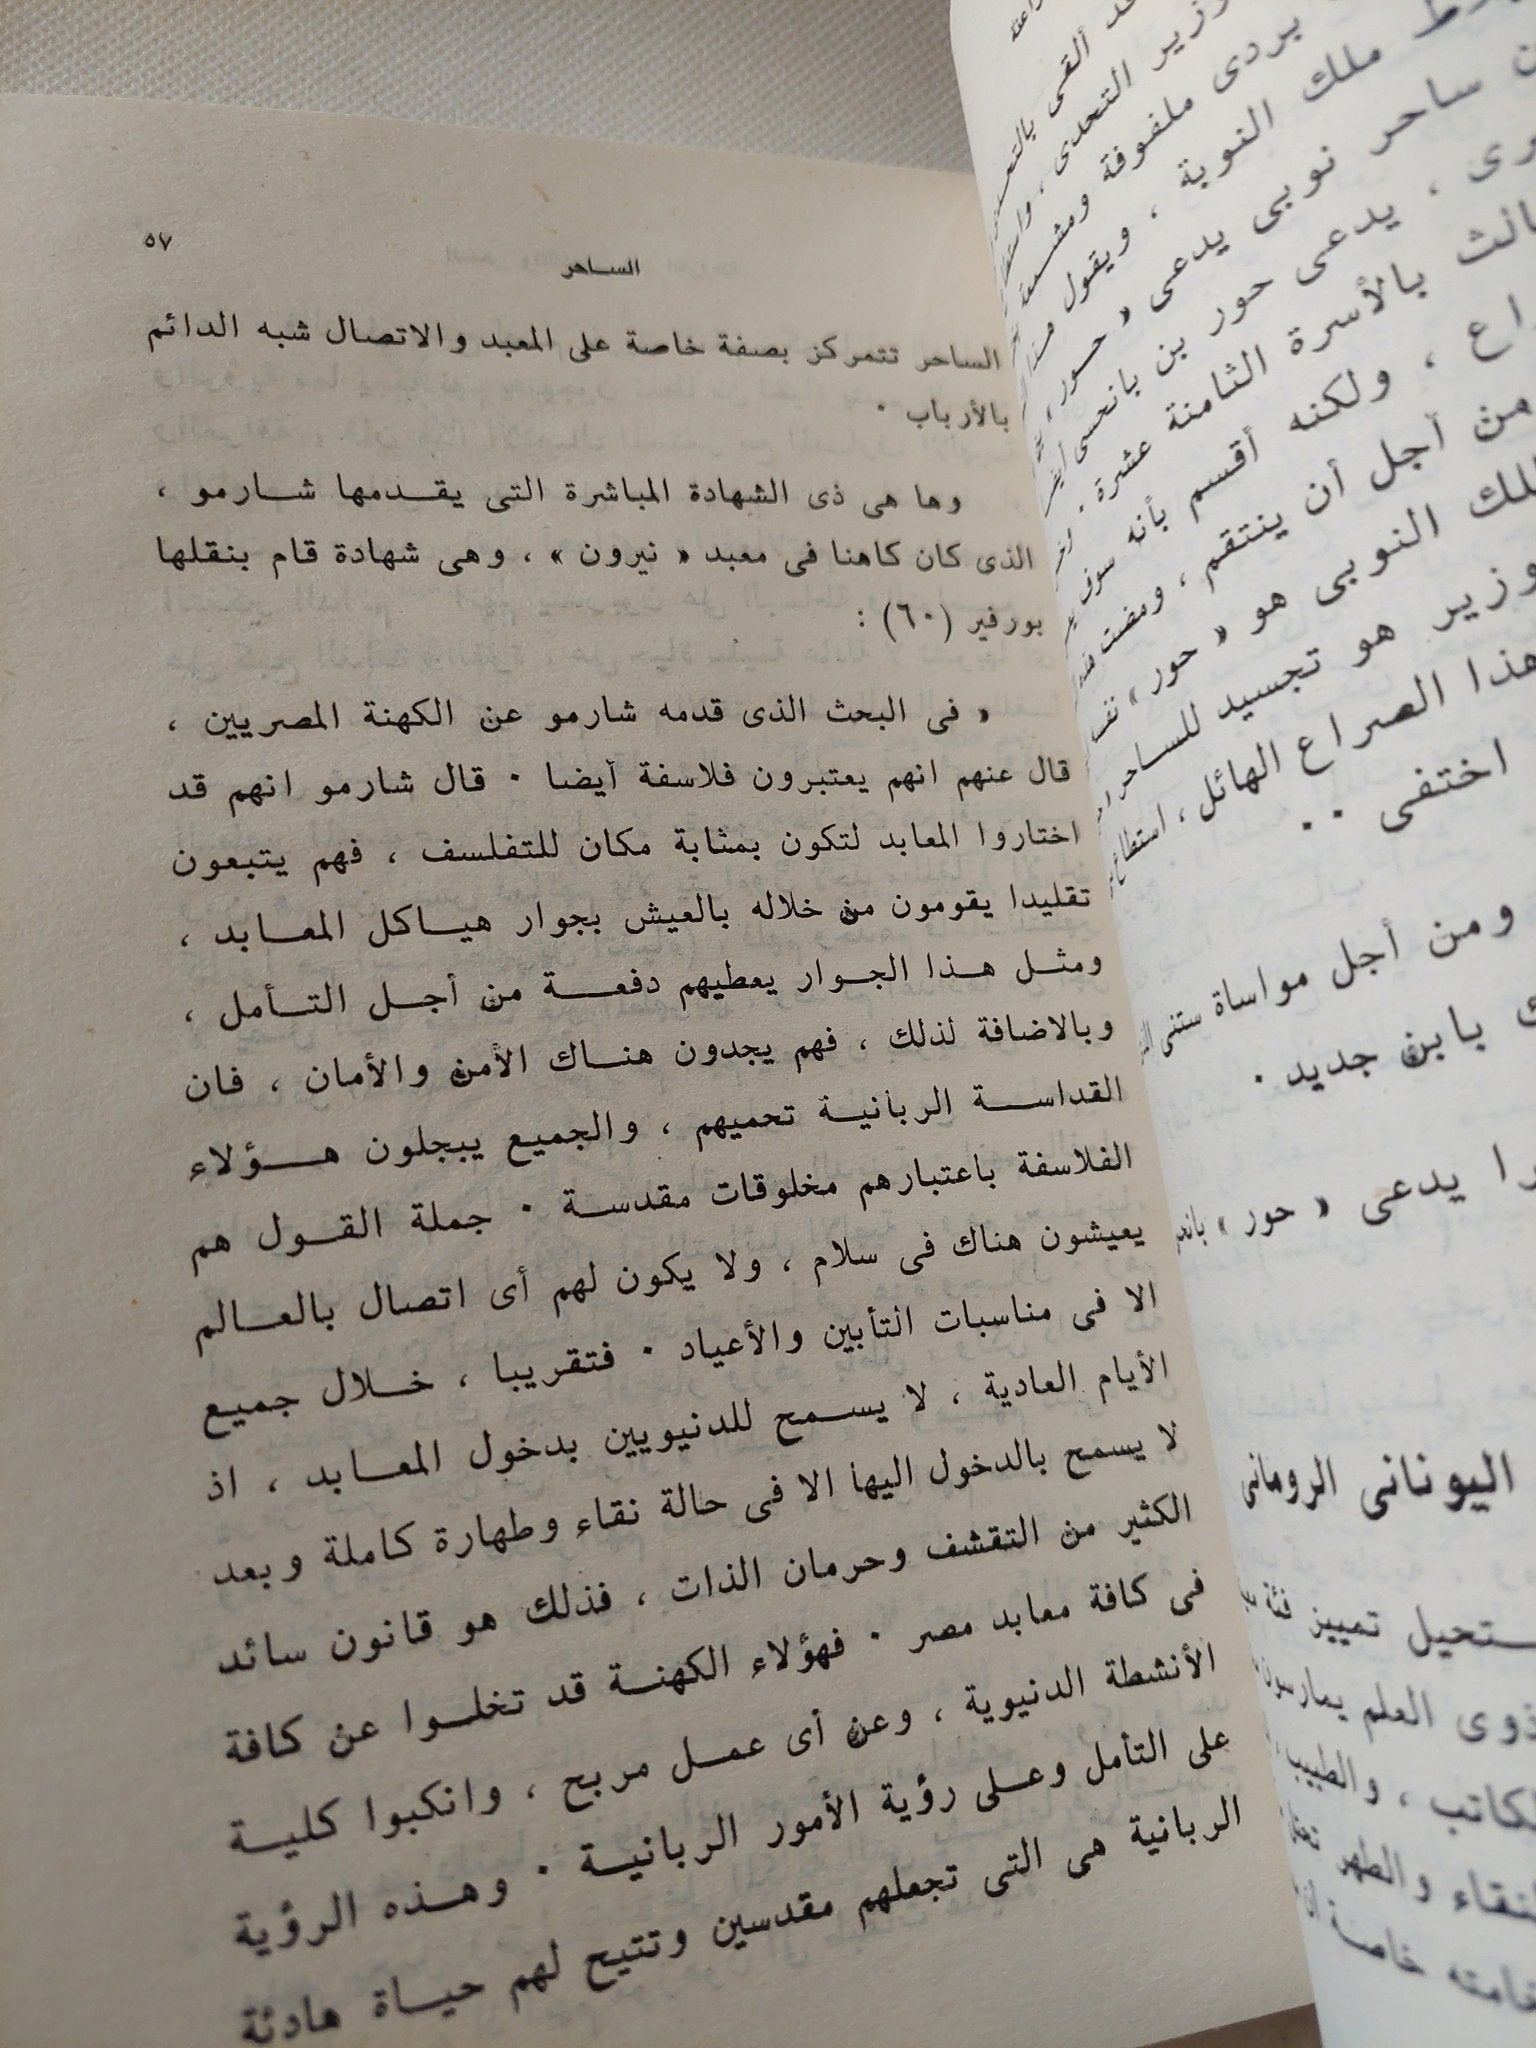 عد ألقى بالتحدي
وزير التحدى ، واستطا
يردى ملفوفة ومشمعة
ملك النوبة ، ويقول هذا
ساحر نوبى يدعى « حور ،
رى ، يدعى حور بن بانحسى أيض
الث بالأسرة الثامنة عشرة .
راع ، ولكنه أقسم بأنه سوف
من أجل أن ينتقم ، ومضت هذه
لك النوبى هو « حور » نفسه
وزير هو تجسيد للساحر
هذا الصراع الهائل ، استطاع
اختفى . .
ومن أجل مواساة ستنى
ك بابن جديد .
را يدعى « حور » بانح
اليونانى الرومانى
ستحيل تمييز فئة
ذوى العلم يمارسون
لكاتب ، والطبيب
لنقاء والطهر
خاصة
٥٧
الساحر
الساحر تتمركز بصفة خاصة على المعبد والاتصال شبه الدائم
بالأرباب .
وها هى ذى الشهادة المباشرة التى يقدمها شارمو ،
الذى كان كاهنا فى معبد « نيرون » ، وهى شهادة قام بنقلها
بورفير (٦٠) :
« فى البحث الذى قدمه شارمو عن الكهنة المصريين ،
قال عنهم انهم يعتبرون فلاسفة أيضا . قال شارمو انهم قد
اختاروا المعابد لتكون بمثابة مكان للتفلسف ، فهم يتبعون
تقليدا يقومون من خلاله بالعيش بجوار هياكل المعابد ،
ومثل هذا الجوار يعطيهم دفعة من أجل التأمل ،
وبالاضافة لذلك ، فهم يجدون هناك الأمن والأمان ، فان
القداسة الربانية تحميهم ، والجميع يبجلون هؤلاء
الفلاسفة باعتبارهم مخلوقات مقدسة . جملة القول هم
يعيشون هناك فى سلام ، ولا يكون لهم أى اتصال بالعالم
الا فى مناسبات التأبين والأعياد . فتقريبا ، خلال جميع
الأيام العادية ، لا يسمح للدنيويين بدخول المعابد ، اذ
لا يسمح بالدخول اليها الا فى حالة نقاء وطهارة كاملة وبعد
الكثير من التقشف وحرمان الذات ، فذلك هو قانون سائد
فى كافة معابد مصر . فهؤلاء الكهنة قد تخلوا عن كافة
الأنشطة الدنيوية ، وعن أى عمل مربح ، وانكبوا كلية
على التأمل وعلى رؤية الأمور الربانية . وهذه الرؤية
الربانية هى التى تجعلهم مقدسين وتتيح لهم حياة هادئة